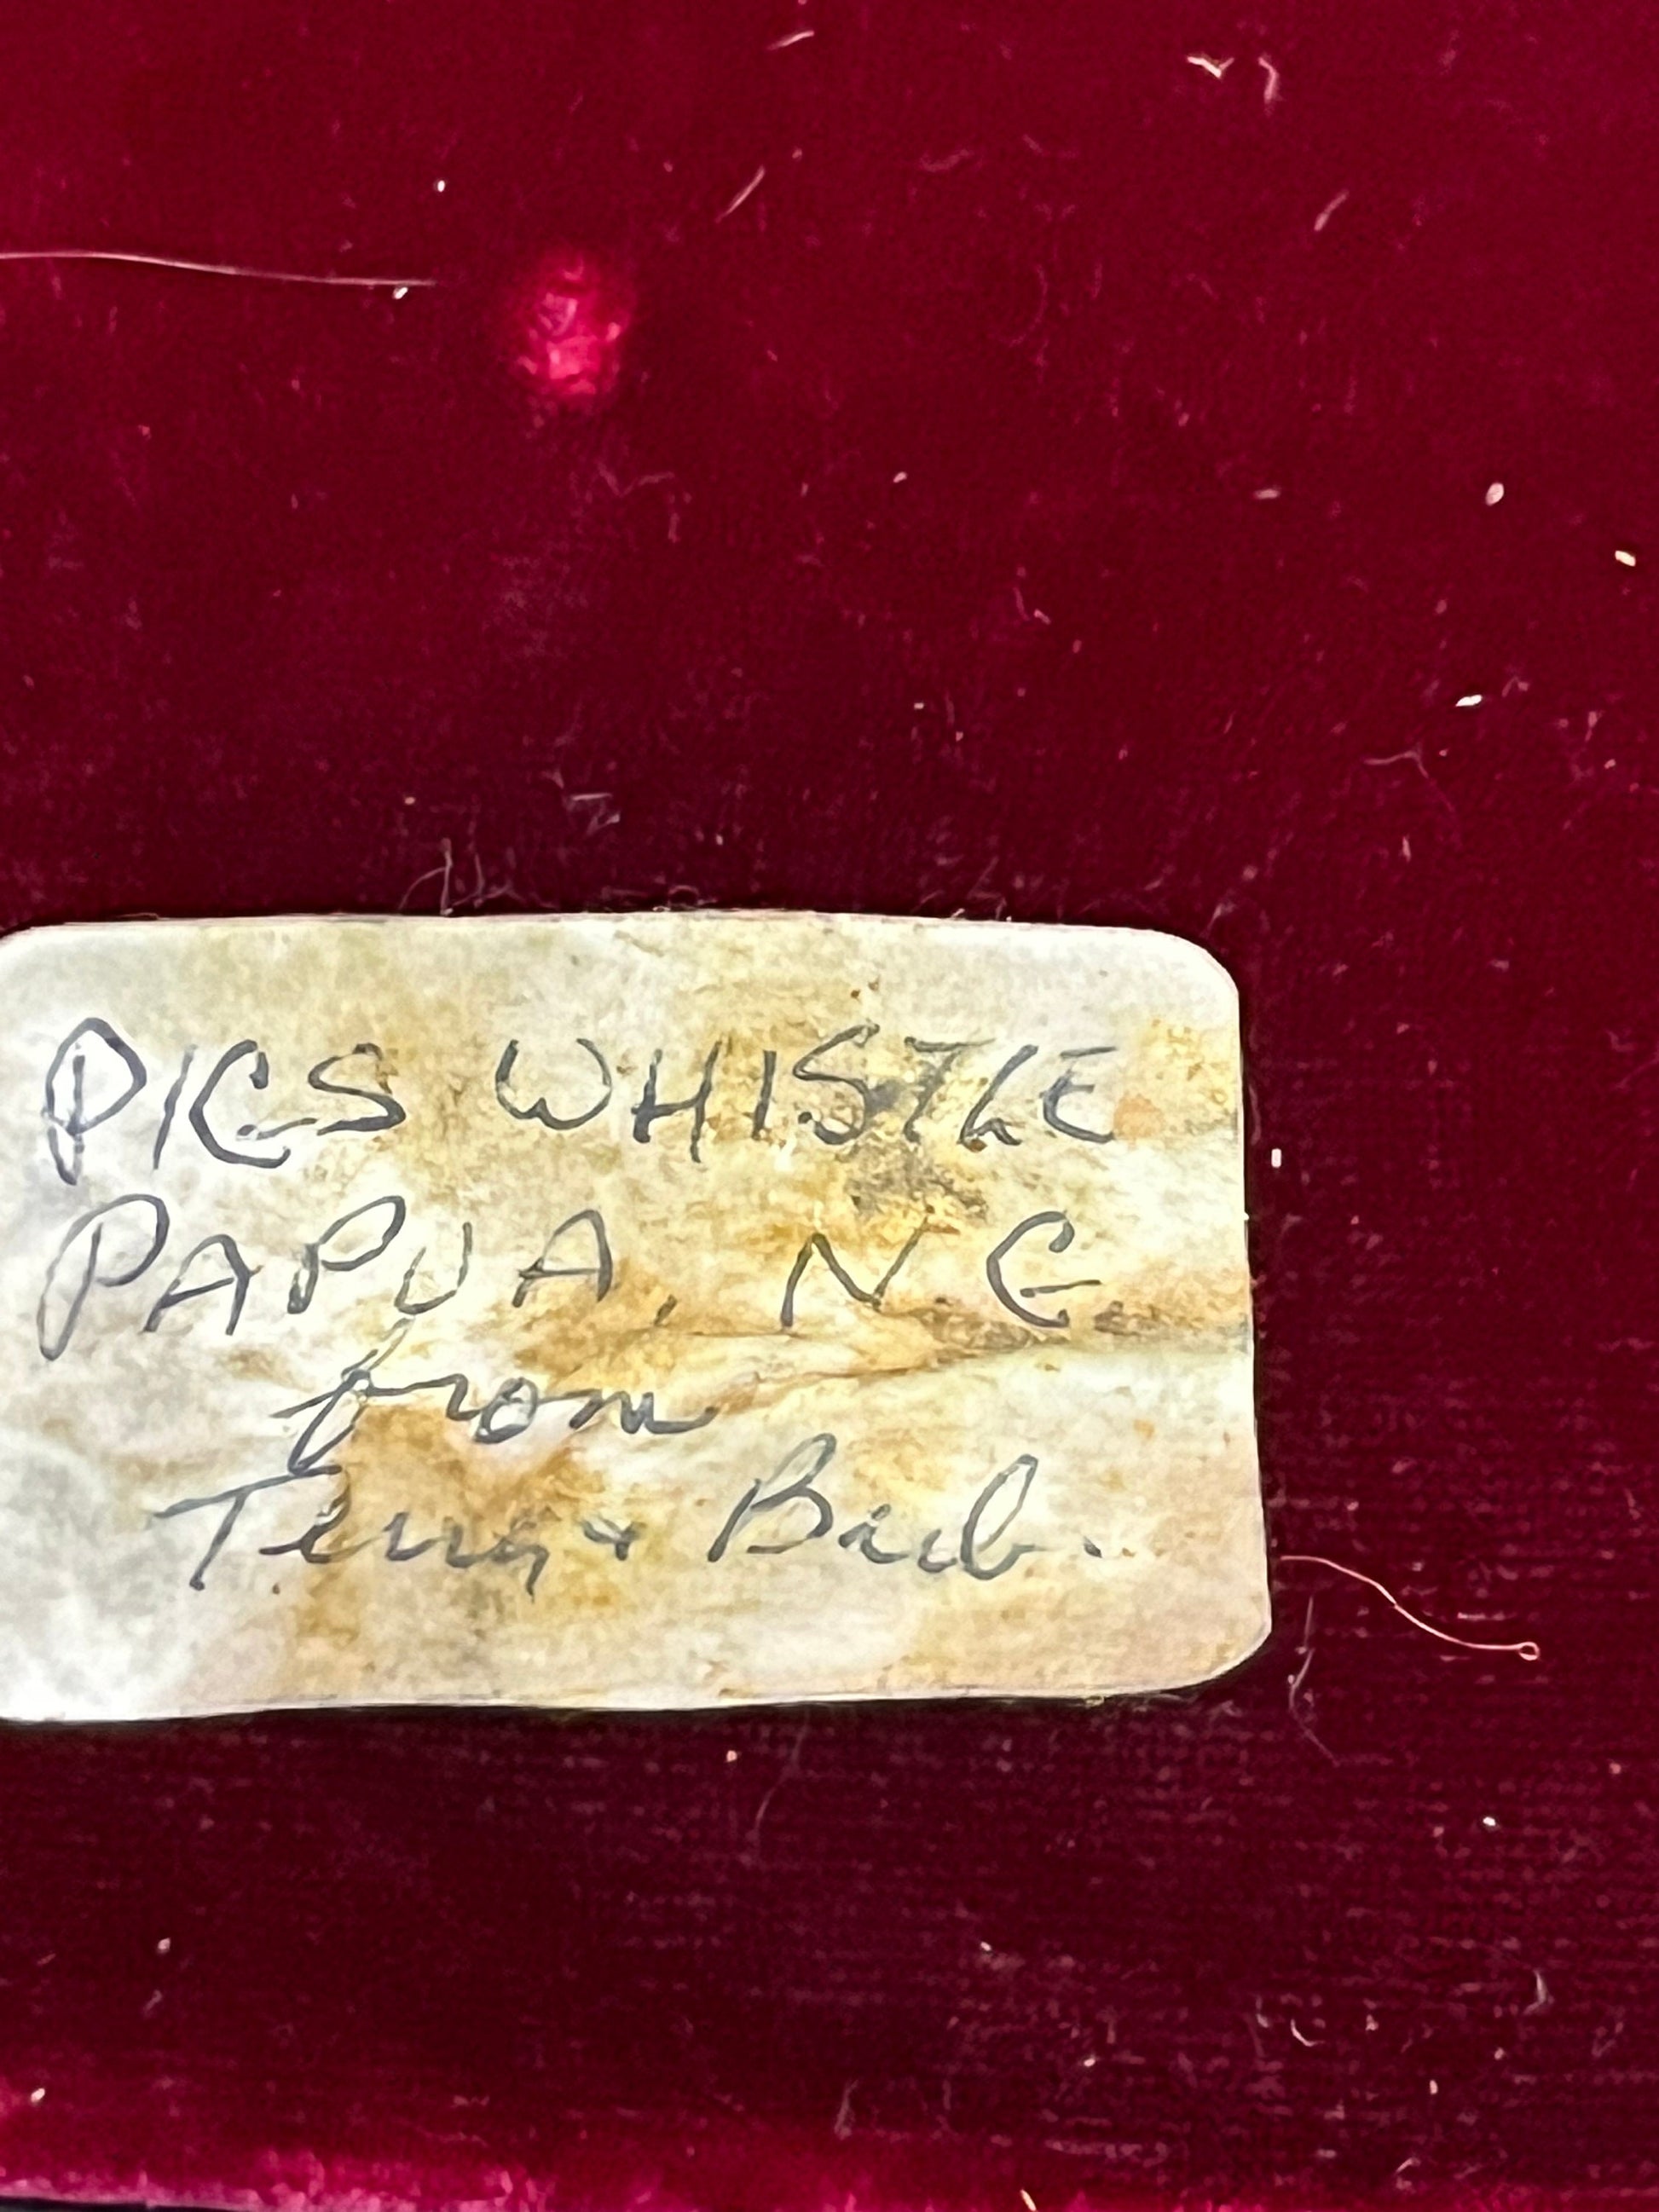 PIGS WHISTLE
PAPUA, N G
from
Terry & Barb.